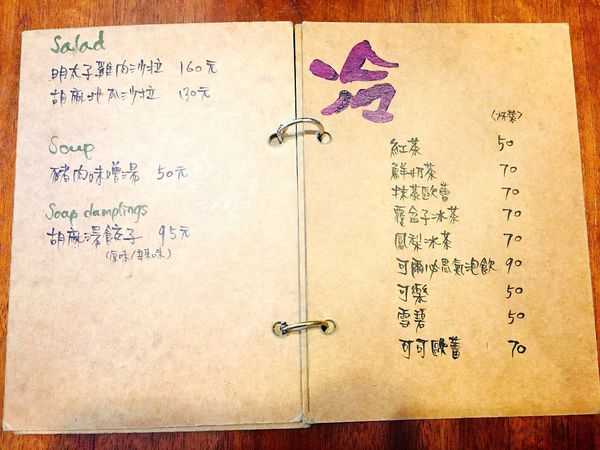 Salad
明太子雞肉沙拉 160元
胡麻地瓜沙拉 130元
Soup
豬肉味噌湯 50元
Soap damplings
胡麻湯餃子 95元
(原味/辣味)
冷
(杯裝)
紅茶 50
鮮奶茶 70
抹茶歐蕾 70
覆盆子冰茶 70
鳳梨冰茶 70
可爾必思氣泡飲 90
可樂 50
雪碧 50
可可歐蕾 70